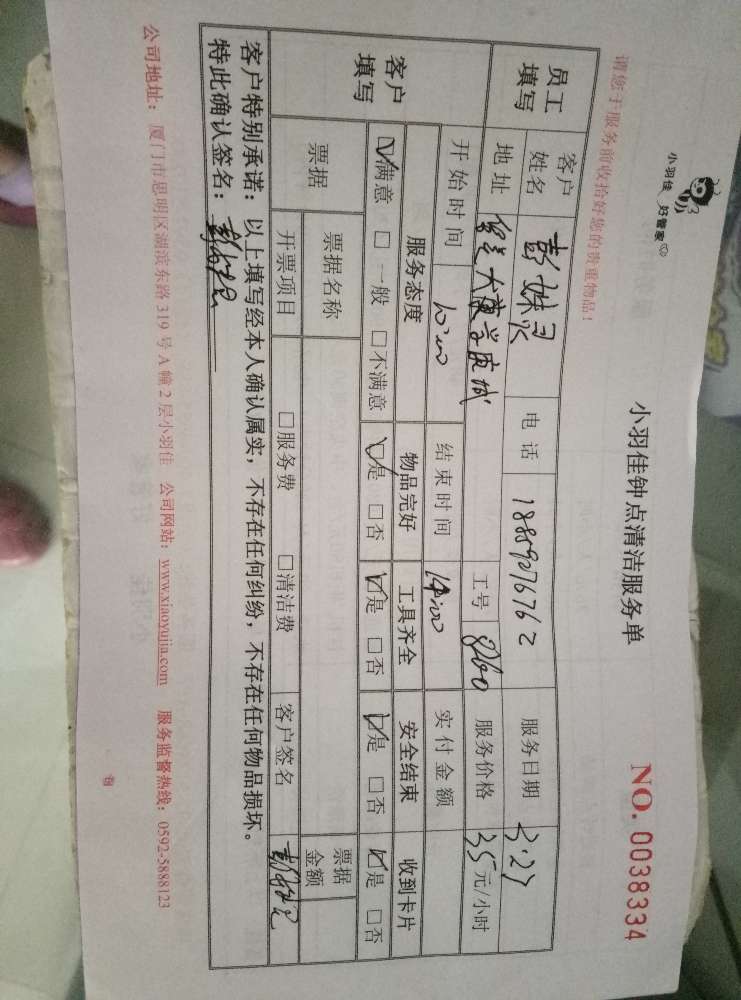 小羽佳 好管家
小羽佳钟点清洁服务单
NO. 0038334
请您于服务前收拾好您的贵重物品!
员工填写 客户姓名 彭 电话 18859276762 服务日期 3.27
地址 工号 8260 服务价格 35元/小时
客户填写 开始时间 10:00 结束时间 14:00 实付金额
服务态度 物品完好 工具齐全 安全结束 收到卡片
☑满意 □一般 □不满意 ☑是 □否 ☑是 □否 ☑是 □否 ☑是 □否
票据 票据名称 票据金额
开票项目 □服务费 □清洁费 客户签名
客户特别承诺:以上填写经本人确认属实,不存在任何纠纷,不存在任何物品损坏。
特此确认签名:
公司地址:厦门市思明区湖滨东路 319 号 A 幢 2 层小羽佳 公司网站:www.xiaoyujia.com 服务监督热线:0592-5888123